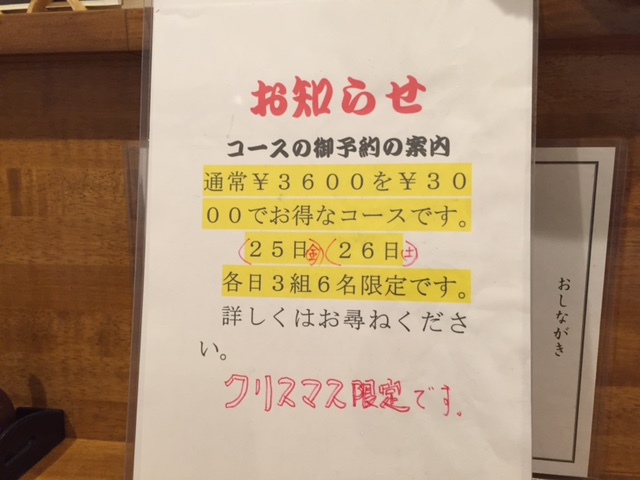 お知らせ
コースの御予約の案内
通常￥３６００を￥３０
００でお得なコースです。
(２５日㊎(２６日㊏
各日３組６名限定です。
詳しくはお尋ねくださ
い。
クリスマス限定です。
おしながき